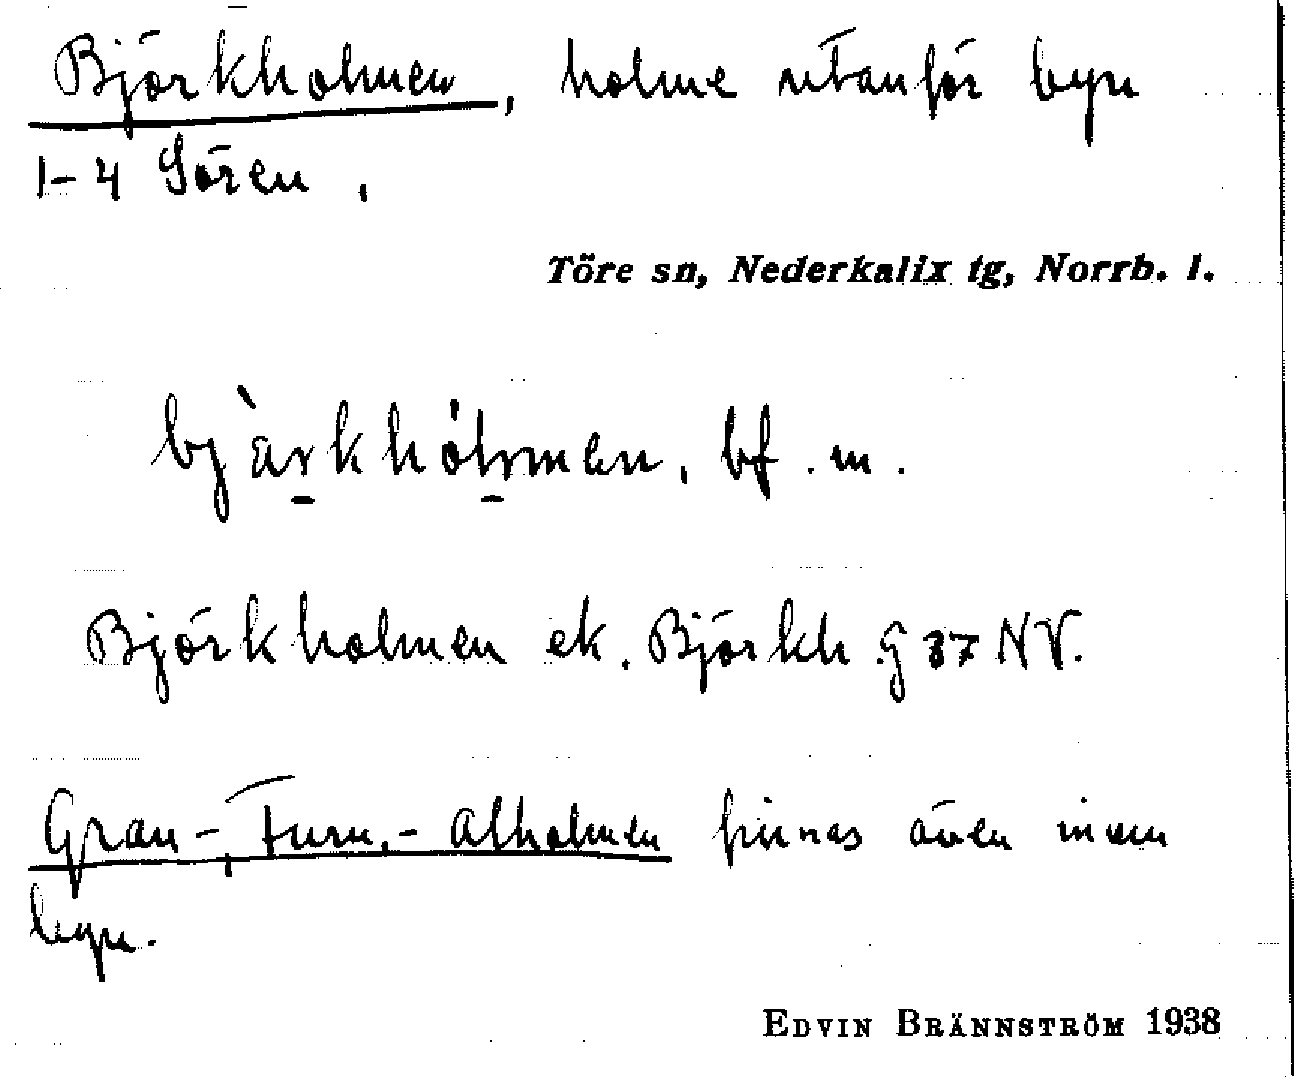 Björkholmen, holme utanför byn
1-4 Sören.
Töre sn, Nederkalix tg, Norrb. l.
bjàrkhólmen, bf. m.
Björkholmen ek. Björkh. G 37 NV.
Gran-, Furu-, Alholmen finnas även inom
byn.
EDVIN BRÄNNSTRÖM 1938